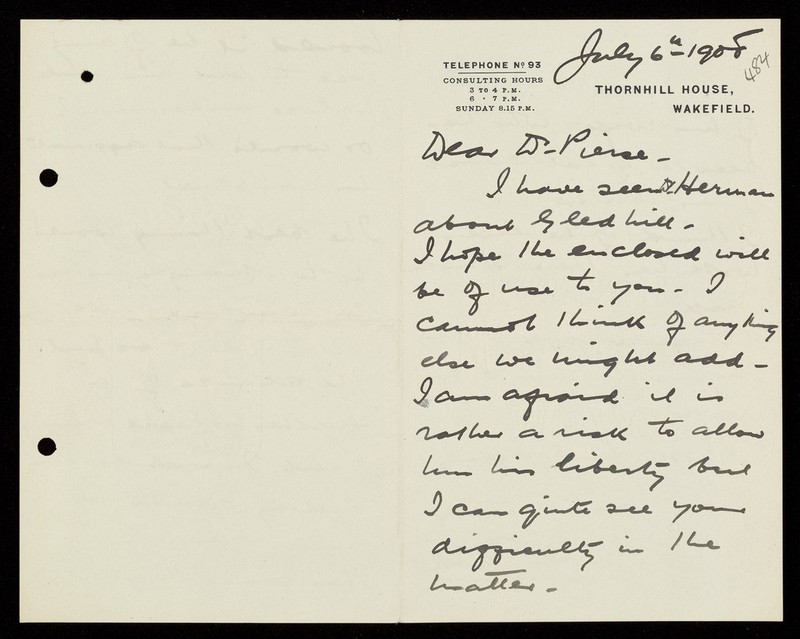 July 6th 1908
484
TELEPHONE No 93
CONSULTING HOURS
3 TO 4 P.M.
6 " 7 P.M.
SUNDAY 8.15 P.M.
THORNHILL HOUSE,
WAKEFIELD.
Dear Dr Pierse -
I have seen Dr Herman
about Gledhill -
I hope the enclosed will
be of use to you - I
cannot think of anything
else we might add -
I am afraid it is
rather a risk to allow
him his liberty but
I can quite see your
difficulty in the
matter -